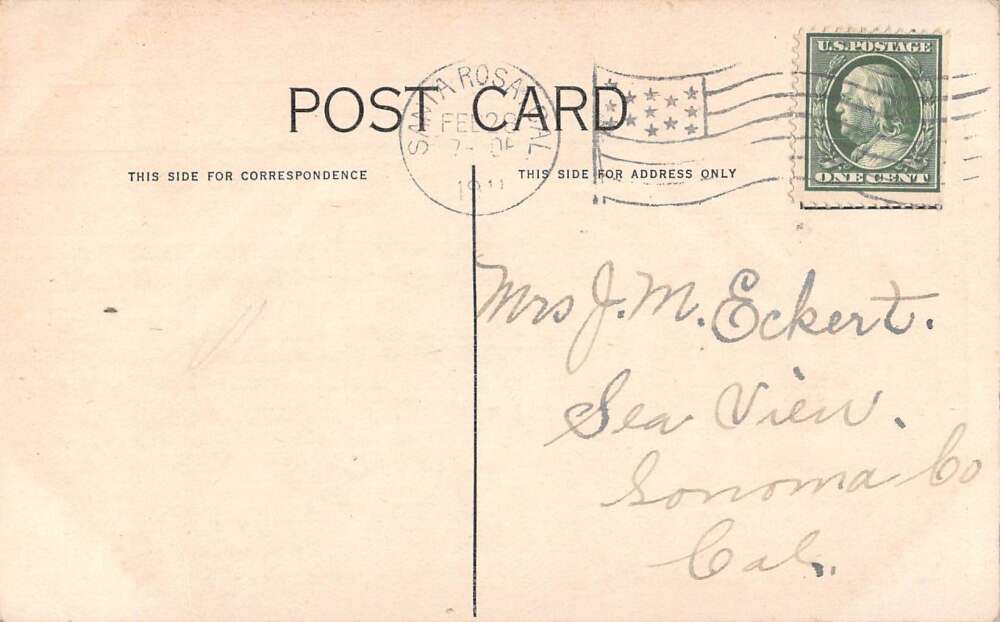 POST CARD
THIS SIDE FOR CORRESPONDENCE
THIS SIDE FOR ADDRESS ONLY
SANTA ROSA, CAL
FEB 28
1911
U.S. POSTAGE
ONE CENT
Mrs J. M. Eckert.
Sea View.
Sonoma Co
Cal.